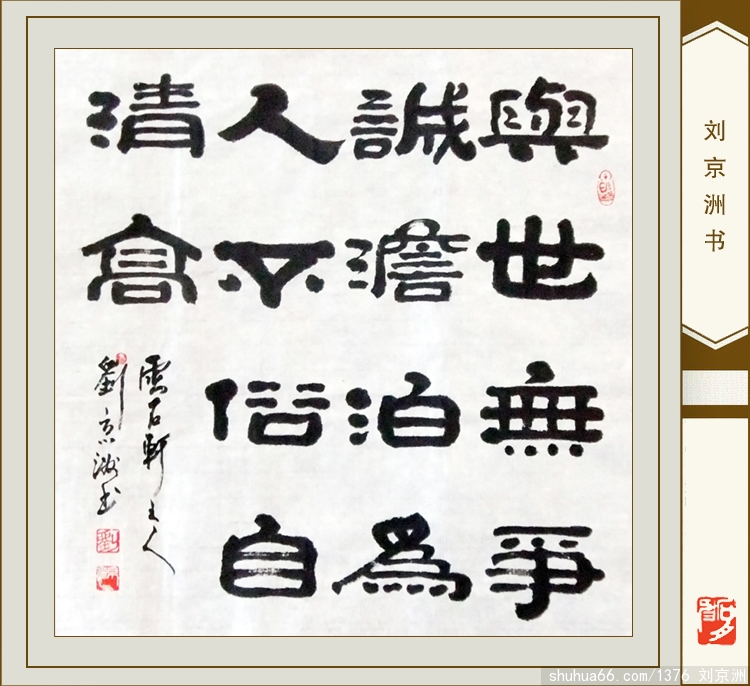 與世無爭
誠澹泊為
人不俗自
清高
雲石軒主人
劉京洲书
刘京洲书
shuhua66.com/1376 刘京洲